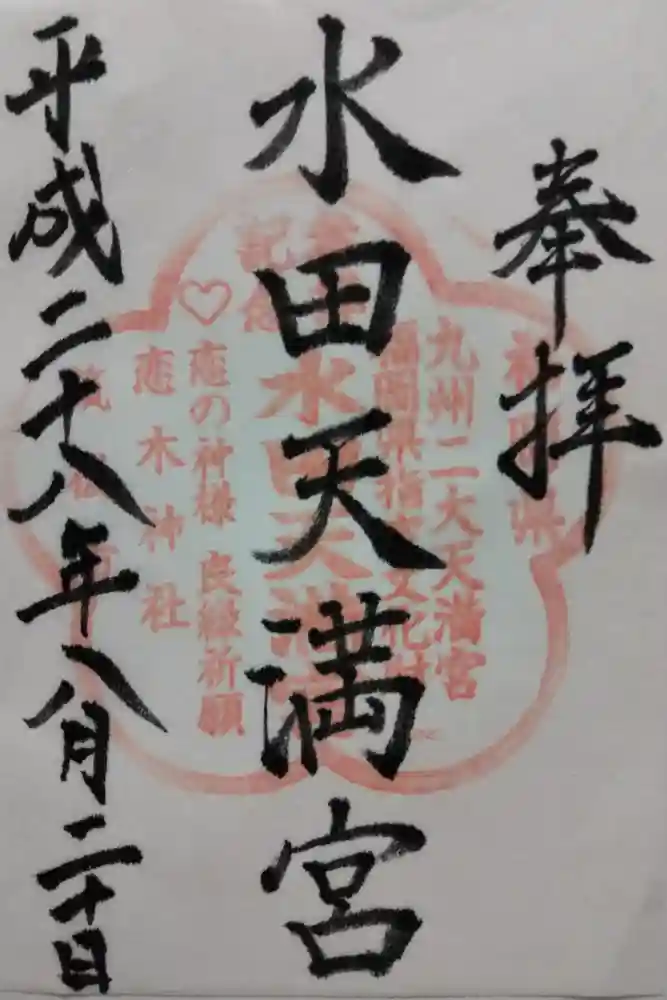 奉拝
水田天満宮
平成二十八年八月二十日
福岡県
九州二大天満宮
福岡県指定文化財
参拝記念
水田天満宮
恋の神様 良縁祈願
恋木神社
筑後市